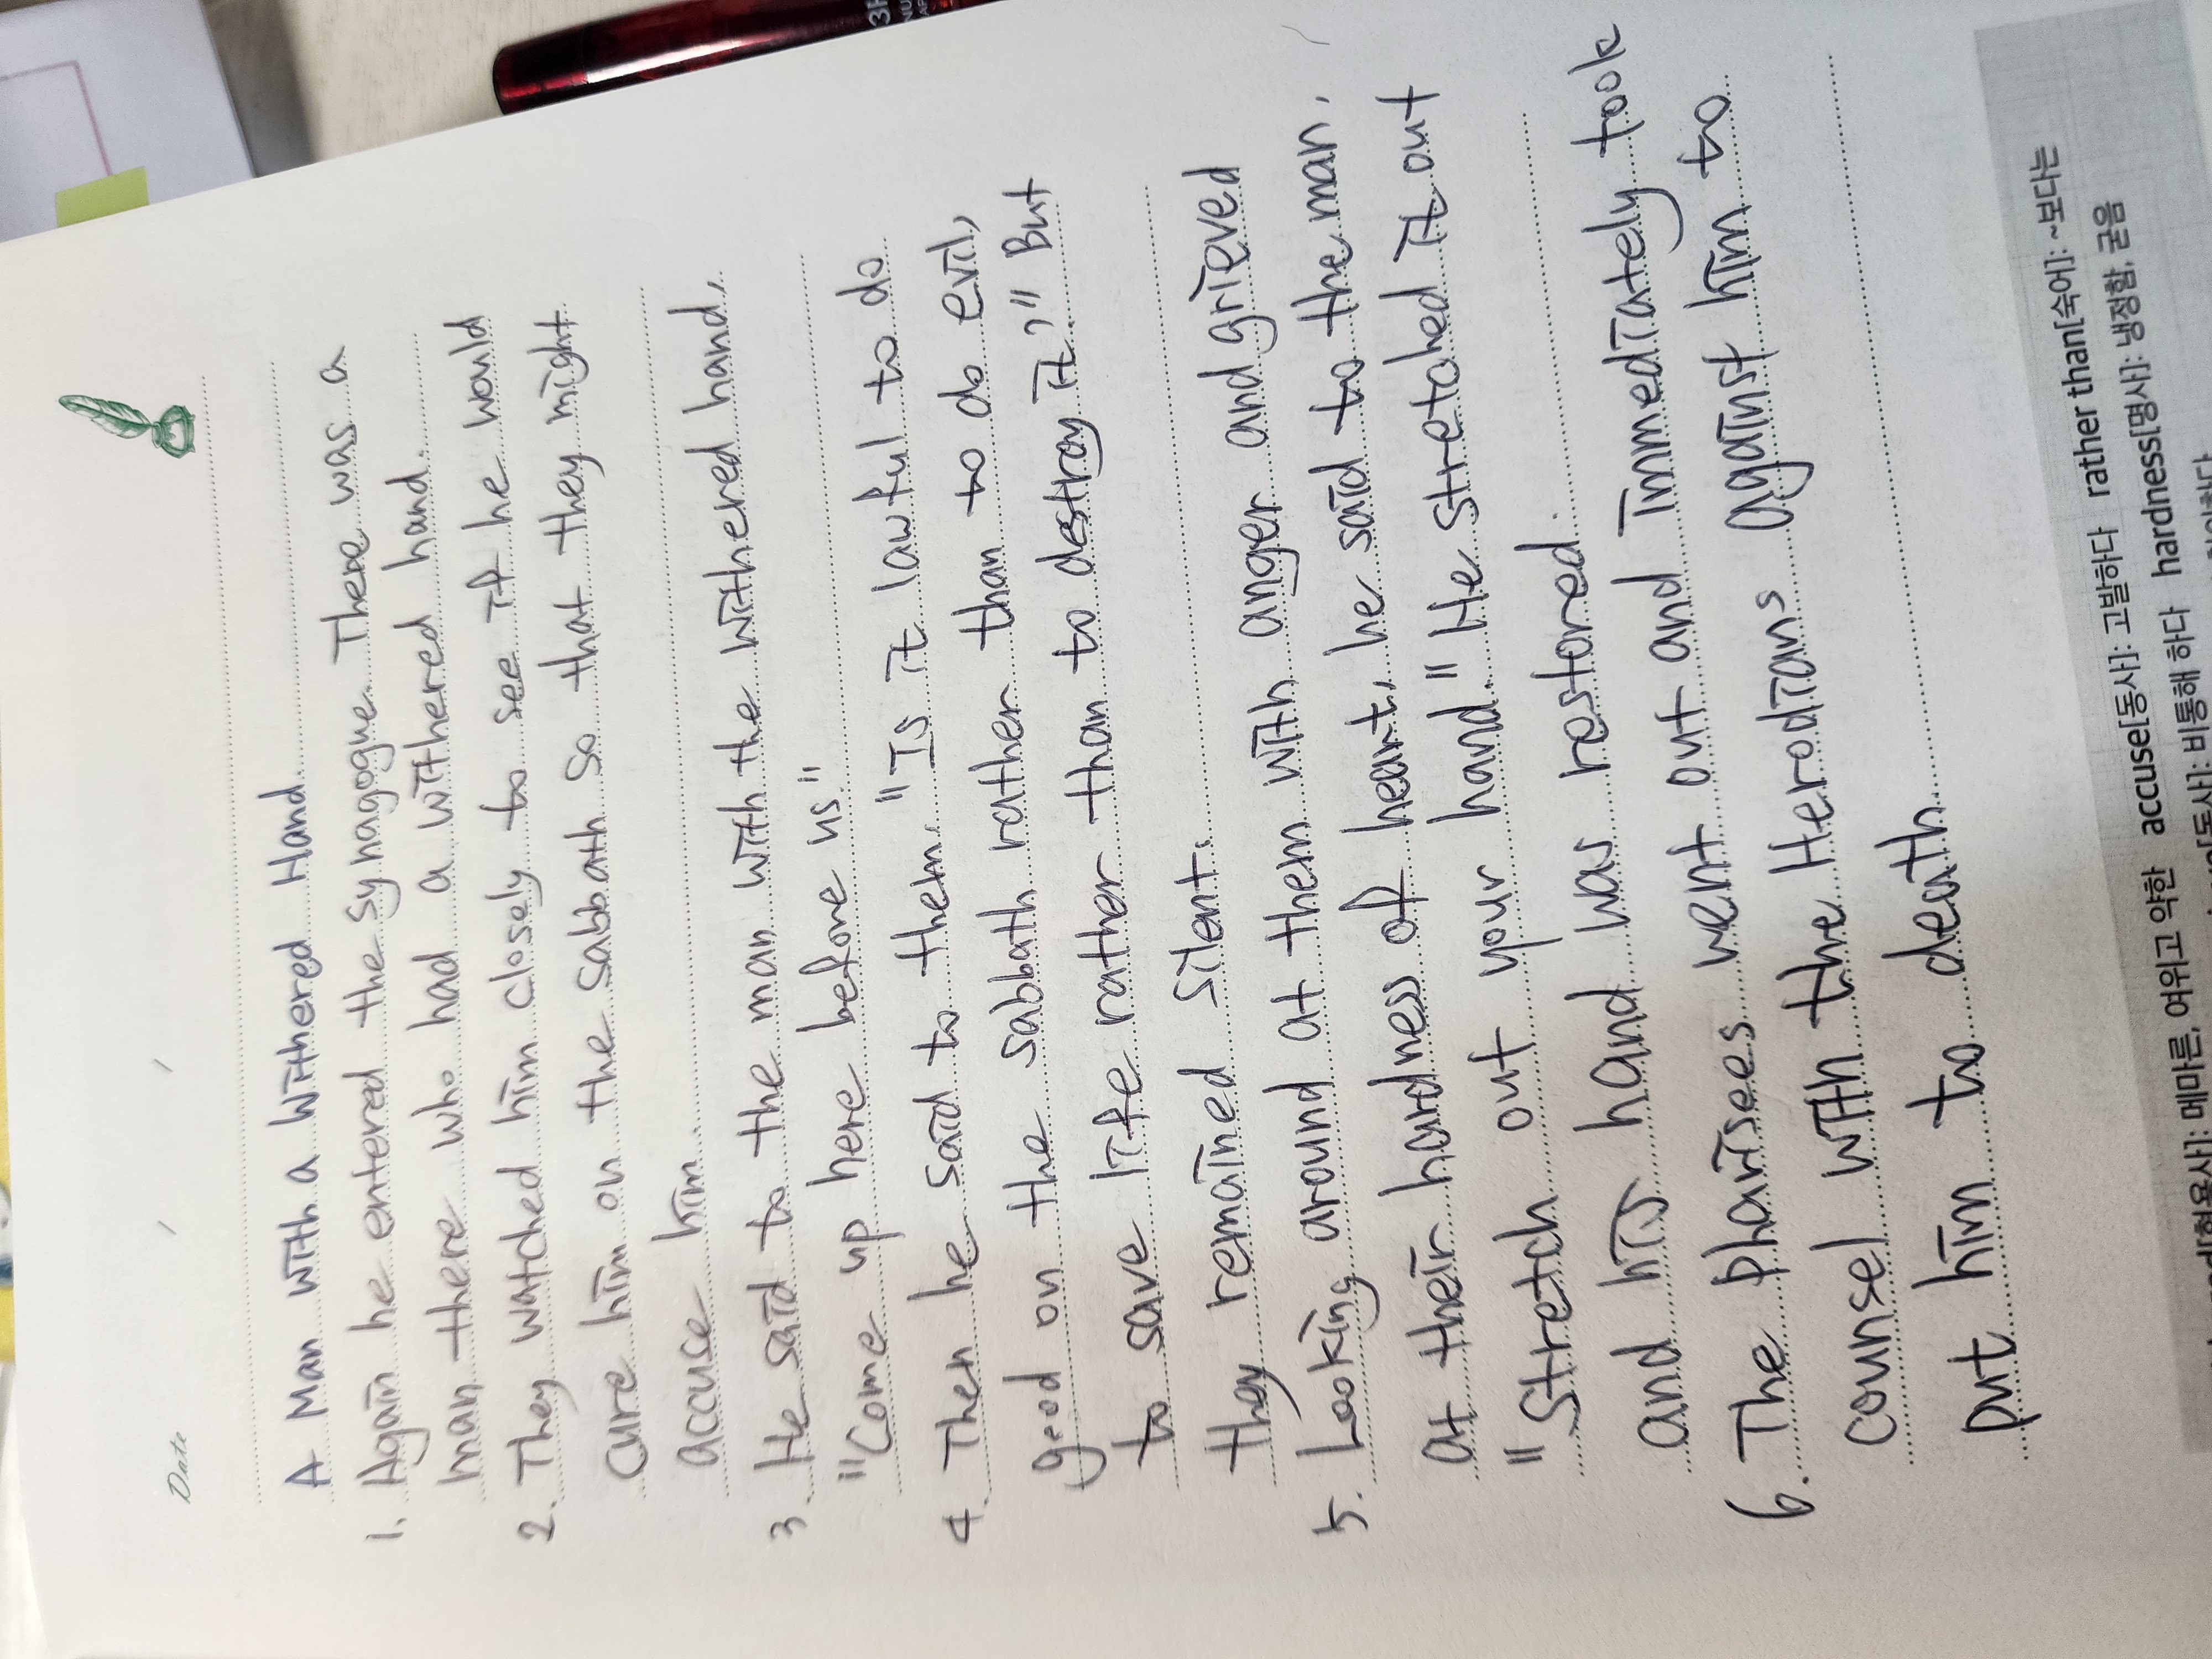 Date
A Man with a Withered Hand
1. Again he entered the synagogue. There was a
man there who had a withered hand.
2. They watched him closely to see if he would
cure him on the sabbath so that they might
accuse him.
3. He said to the man with the withered hand,
"Come up here before us."
4. Then he said to them. "Is it lawful to do
good on the sabbath rather than to do evil,
to save life rather than to destroy it?" But
they remained silent.
5. Looking around at them with anger and grieved
at their hardness of heart, he said to the man,
"Stretch out your hand." He stretched it out
and his hand was restored.
6. The pharisees went out and immediately took
counsel with the Herodians against him to
put him to death.
메마른, 여위고 약한 accuse[동사]: 고발하다 rather than[숙어]: ~보다는
비통해 하다 hardness[명사]: 냉정함, 굳음